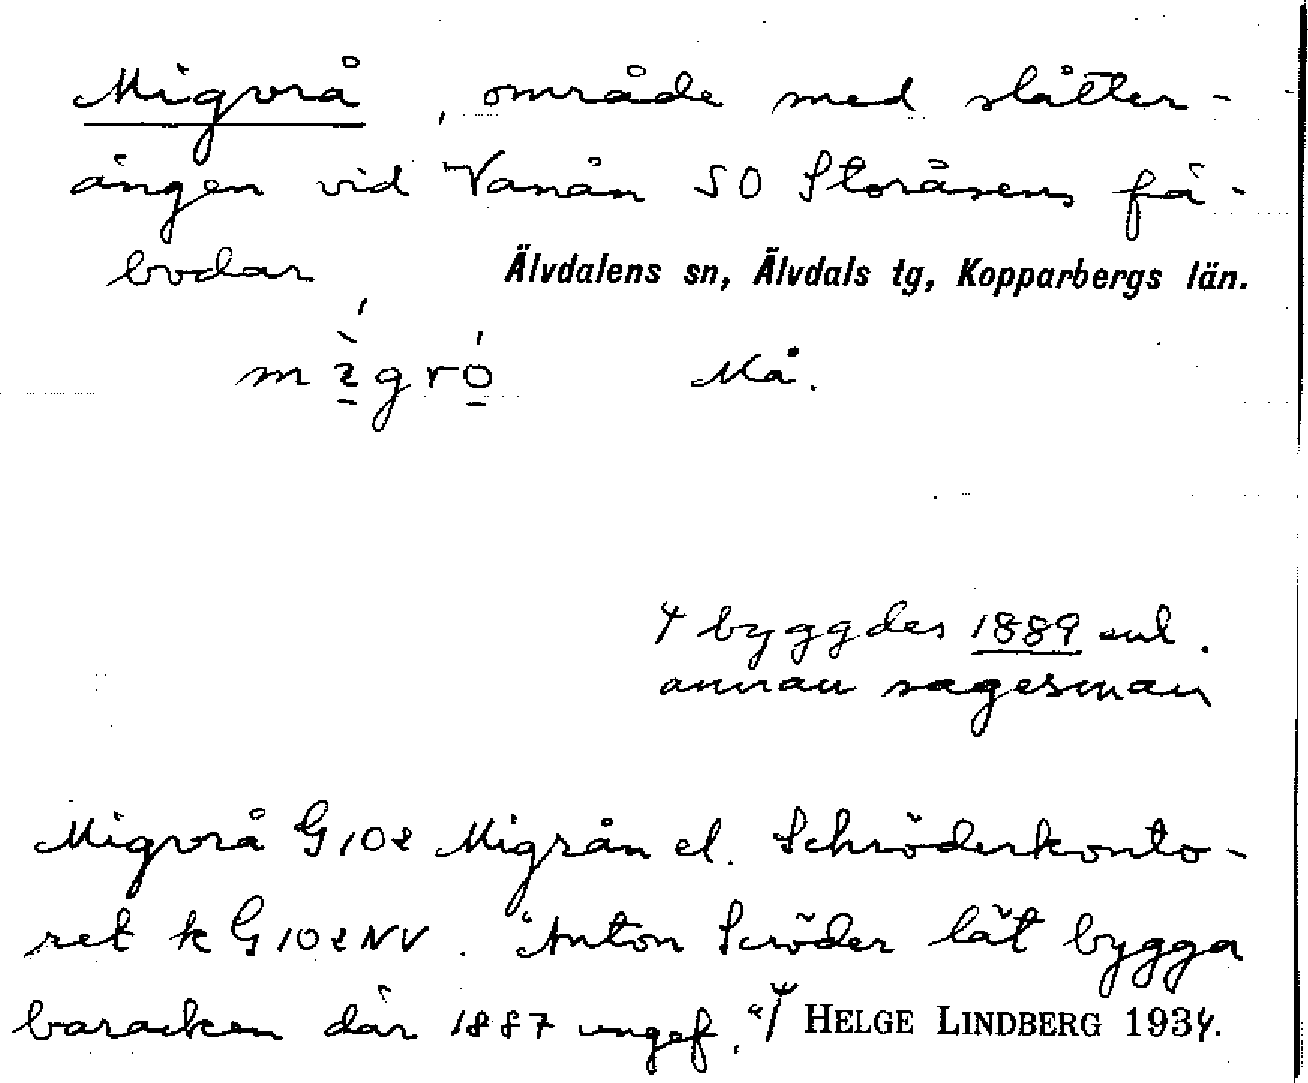 Migrå, område med slåtter-
ängen vid Vanån SO Storåsens fä-
bodar Älvdalens sn, Älvdals tg, Kopparbergs län.
Må.
byggdes 1889 enl.
annan sagesman
Migrå G102 Migrån el. Schröderkonto-
ret k G102NV. "Anton Scröder lät bygga
baracken där 1887 ungef." HELGE LINDBERG 1934.